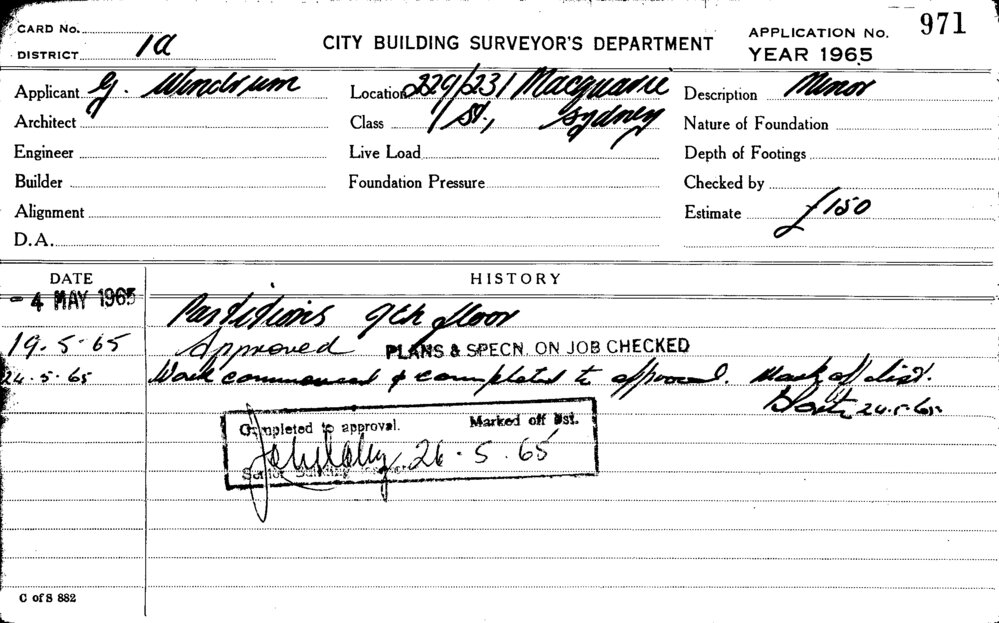 CARD No. CITY BUILDING SURVEYOR'S DEPARTMENT APPLICATION No. 971
DISTRICT 1a YEAR 1965
Applicant G. Windrum Location 229/231 Macquarie St., Sydney Description Minor
Architect Class Nature of Foundation
Engineer Live Load Depth of Footings
Builder Foundation Pressure Checked by
Alignment Estimate £150
D.A.
DATE HISTORY
- 4 MAY 1965 Partitions 9th floor
19.5.65 Approved PLANS & SPECN. ON JOB CHECKED
24.5.65 Work commenced & completed to approval. Mark off dist.
24.5.65
Completed to approval. Marked off list.
26.5.65
Senior Building
C of S 882